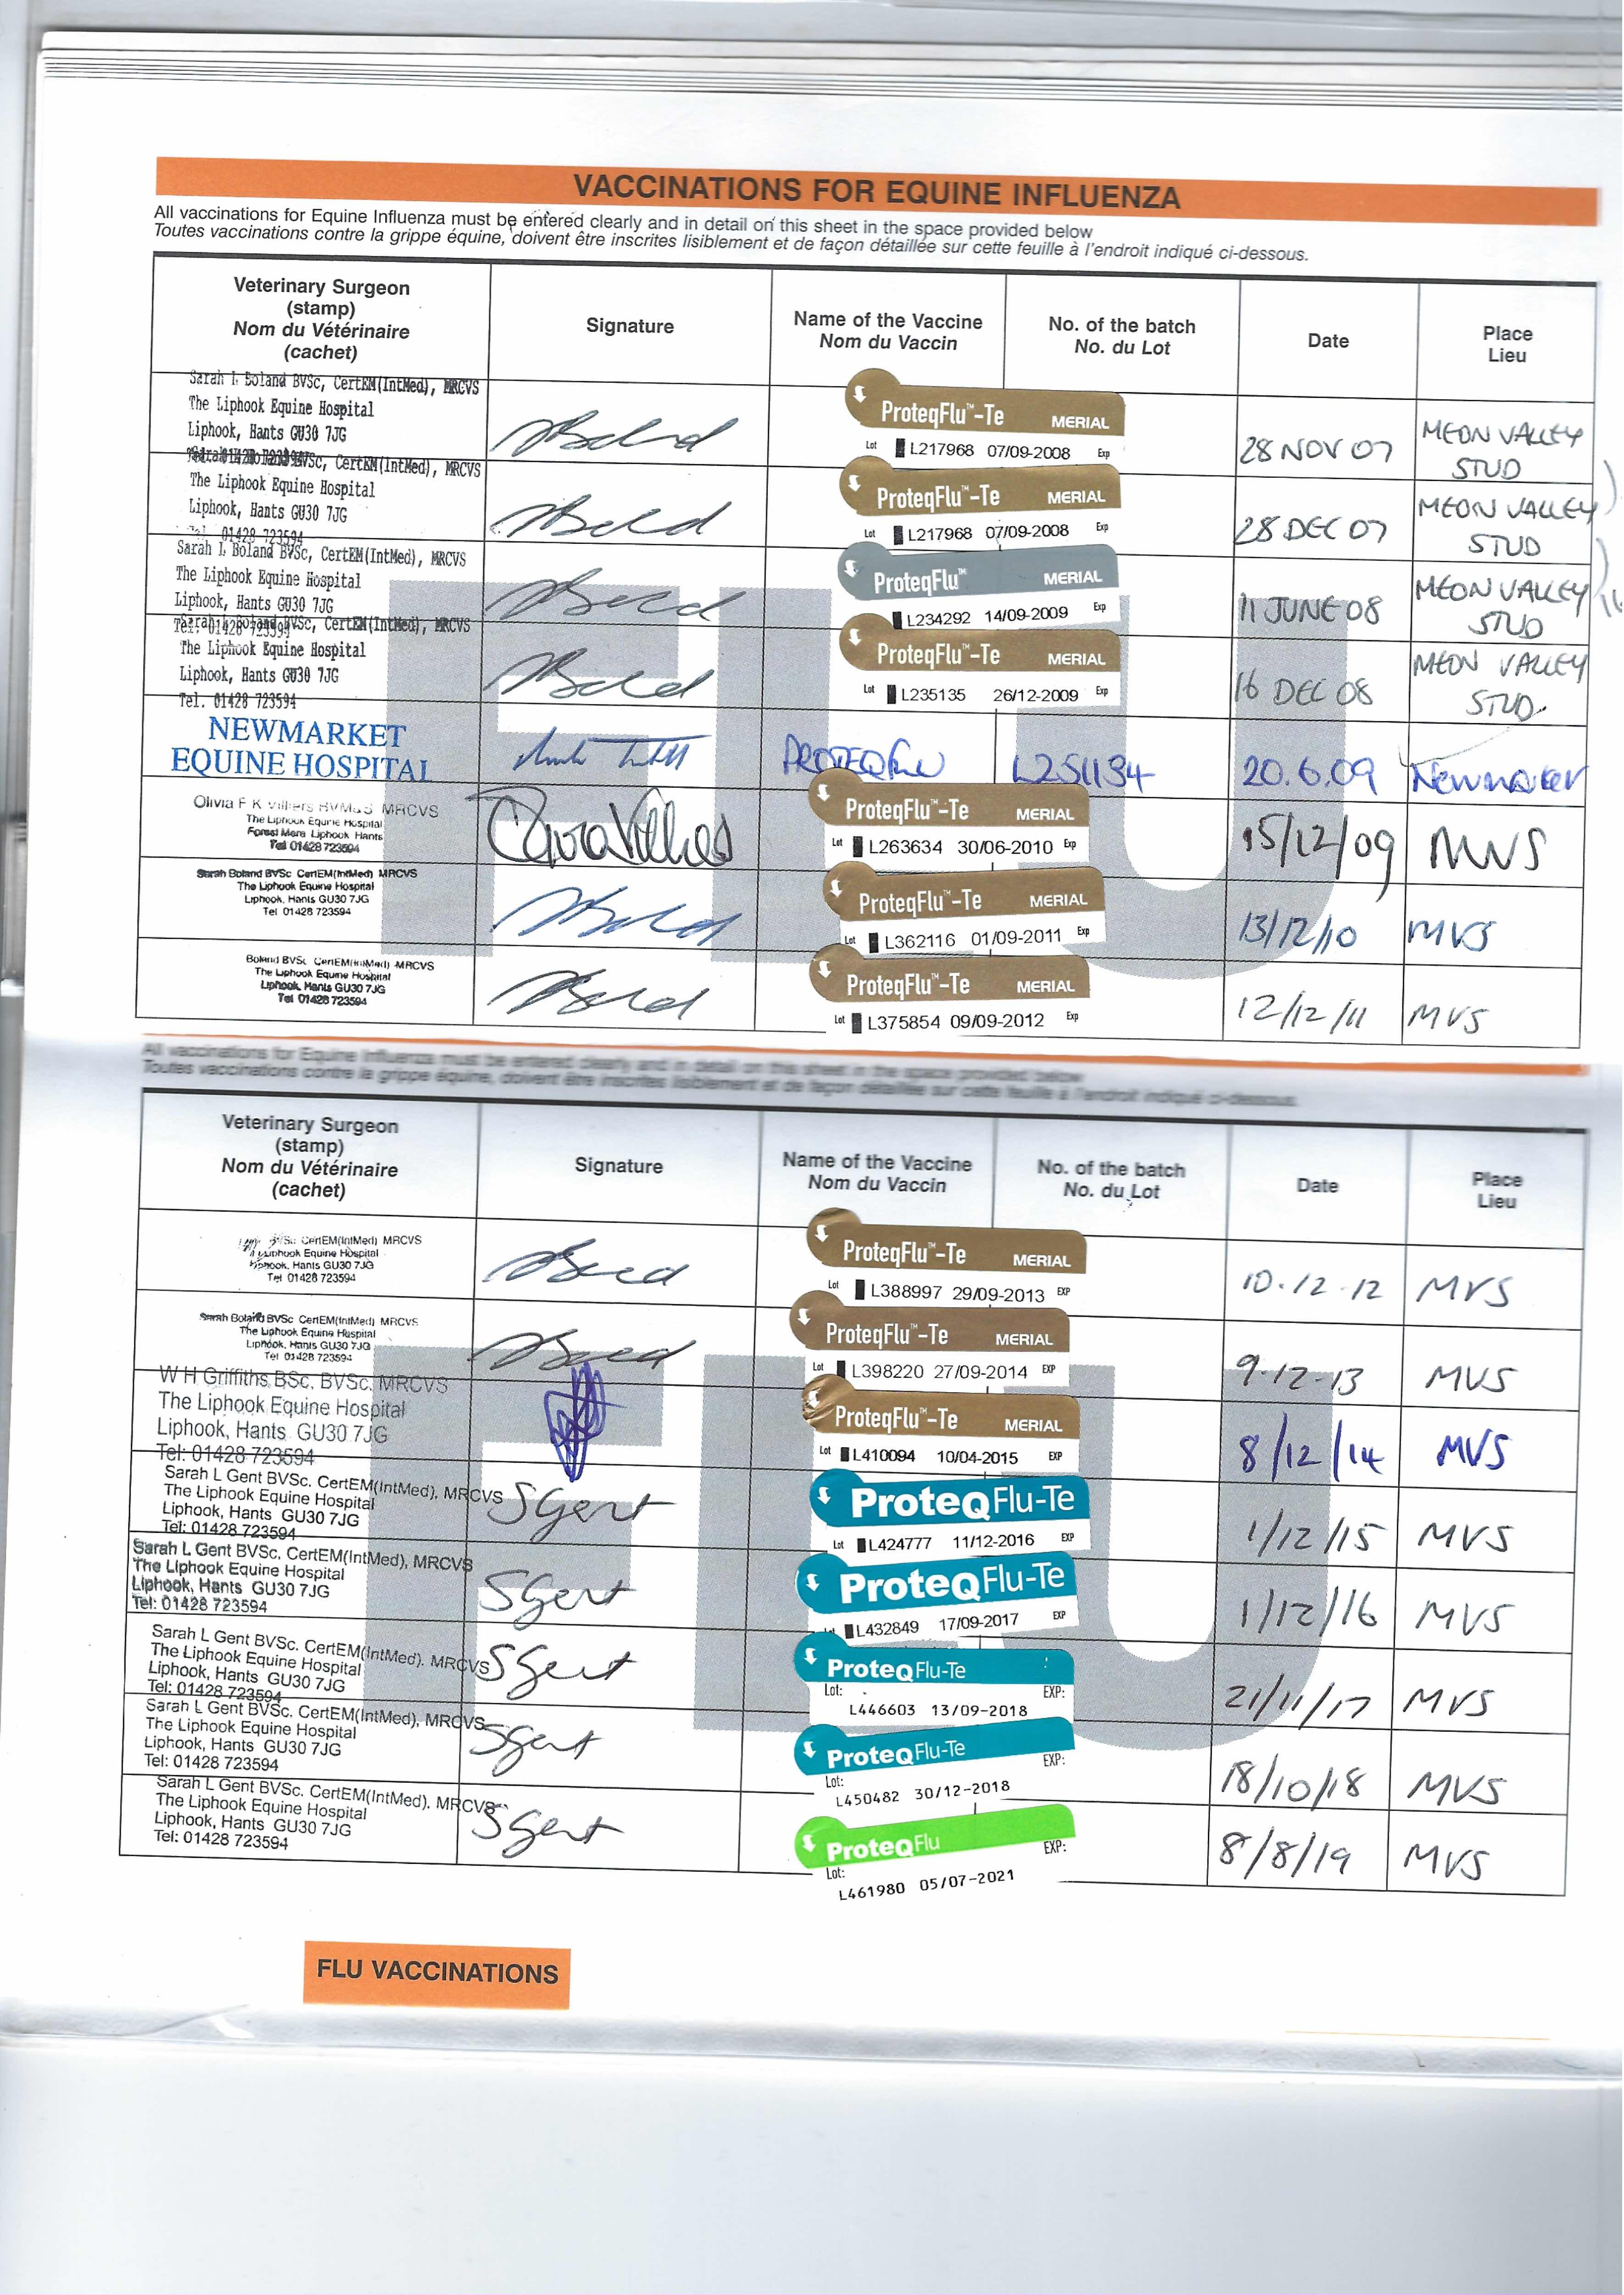 VACCINATIONS FOR EQUINE INFLUENZA
All vaccinations for Equine Influenza must be entered clearly and in detail on this sheet in the space provided below
Toutes vaccinations contre la grippe équine, doivent être inscrites lisiblement et de façon détaillée sur cette feuille à l'endroit indiqué ci-dessous.
Veterinary Surgeon
(stamp)
Nom du Vétérinaire
(cachet)
Signature
Name of the Vaccine
Nom du Vaccin
No. of the batch
No. du Lot
Date
Place
Lieu
Sarah L Boland BVSc, CertEM(IntMed), MRCVS
The Liphook Equine Hospital
Liphook, Hants GU30 7JG
ProteqFlu™-Te MERIAL
Lot L217968 07/09-2008 Exp
28 NOV 07
MEON VALLEY
STUD
BVSc, CertEM(IntMed), MRCVS
The Liphook Equine Hospital
Liphook, Hants GU30 7JG
Tel. 01428 723594
ProteqFlu™-Te MERIAL
Lot L217968 07/09-2008 Exp
28 DEC 07
MEON VALLEY
STUD
Sarah L Boland BVSc, CertEM(IntMed), MRCVS
The Liphook Equine Hospital
Liphook, Hants GU30 7JG
Tel. 01428 723594
ProteqFlu™ MERIAL
L234292 14/09-2009 Exp
11 JUNE 08
MEON VALLEY
STUD
Sarah L Boland BVSc, CertEM(IntMed), MRCVS
The Liphook Equine Hospital
Liphook, Hants GU30 7JG
Tel. 01428 723594
ProteqFlu™-Te MERIAL
Lot L235135 26/12-2009 Exp
16 DEC 08
MEON VALLEY
STUD
NEWMARKET
EQUINE HOSPITAL
PROTEQ flu
L251134
20.6.09
Newmarket
Olivia F K Villiers BVM&S MRCVS
The Liphook Equine Hospital
Forest Mere Liphook Hants
Tel 01428 723594
Olivia Villiers
ProteqFlu™-Te MERIAL
Lot L263634 30/06-2010 Exp
15/12/09
MVS
Sarah Boland BVSc CertEM(IntMed) MRCVS
The Liphook Equine Hospital
Liphook, Hants GU30 7JG
Tel 01428 723594
ProteqFlu™-Te MERIAL
Lot L362116 01/09-2011 Exp
13/12/10
MVS
Boland BVSc CertEM(IntMed) MRCVS
The Liphook Equine Hospital
Liphook, Hants GU30 7JG
Tel 01428 723594
ProteqFlu™-Te MERIAL
Lot L375854 09/09-2012 Exp
12/12/11
MVS
FLU
All vaccinations for Equine Influenza must be entered clearly and in detail on this sheet in the space provided below
Toutes vaccinations contre la grippe équine, doivent être inscrites lisiblement et de façon détaillée sur cette feuille à l'endroit indiqué ci-dessous.
Veterinary Surgeon
(stamp)
Nom du Vétérinaire
(cachet)
Signature
Name of the Vaccine
Nom du Vaccin
No. of the batch
No. du Lot
Date
Place
Lieu
CertEM(IntMed) MRCVS
Liphook Equine Hospital
Liphook, Hants GU30 7JG
Tel 01428 723594
ProteqFlu™-Te MERIAL
Lot L388997 29/09-2013 EXP
10.12.12
MVS
Sarah Boland BVSc CertEM(IntMed) MRCVS
The Liphook Equine Hospital
Liphook, Hants GU30 7JG
Tel 01428 723594
ProteqFlu™-Te MERIAL
Lot L398220 27/09-2014 EXP
9.12.13
MVS
W H Griffiths BSc, BVSc, MRCVS
The Liphook Equine Hospital
Liphook, Hants GU30 7JG
Tel: 01428 723594
ProteqFlu™-Te MERIAL
Lot L410094 10/04-2015 EXP
8/12/14
MVS
Sarah L Gent BVSc. CertEM(IntMed), MRCVS
The Liphook Equine Hospital
Liphook, Hants GU30 7JG
Tel: 01428 723594
SGent
ProteqFlu-Te
Lot L424777 11/12-2016 EXP
1/12/15
MVS
Sarah L Gent BVSc. CertEM(IntMed), MRCVS
The Liphook Equine Hospital
Liphook, Hants GU30 7JG
Tel: 01428 723594
SGent
ProteqFlu-Te
L432849 17/09-2017 EXP
1/12/16
MVS
Sarah L Gent BVSc. CertEM(IntMed). MRCVS
The Liphook Equine Hospital
Liphook, Hants GU30 7JG
Tel: 01428 723594
SGent
ProteqFlu-Te
Lot: EXP:
L446603 13/09-2018
21/11/17
MVS
Sarah L Gent BVSc. CertEM(IntMed), MRCVS
The Liphook Equine Hospital
Liphook, Hants GU30 7JG
Tel: 01428 723594
SGent
ProteqFlu-Te
Lot: EXP:
L450482 30/12-2018
18/10/18
MVS
Sarah L Gent BVSc. CertEM(IntMed). MRCVS
The Liphook Equine Hospital
Liphook, Hants GU30 7JG
Tel: 01428 723594
SGent
ProteqFlu
Lot: EXP:
L461980 05/07-2021
8/8/19
MVS
FLU
FLU VACCINATIONS